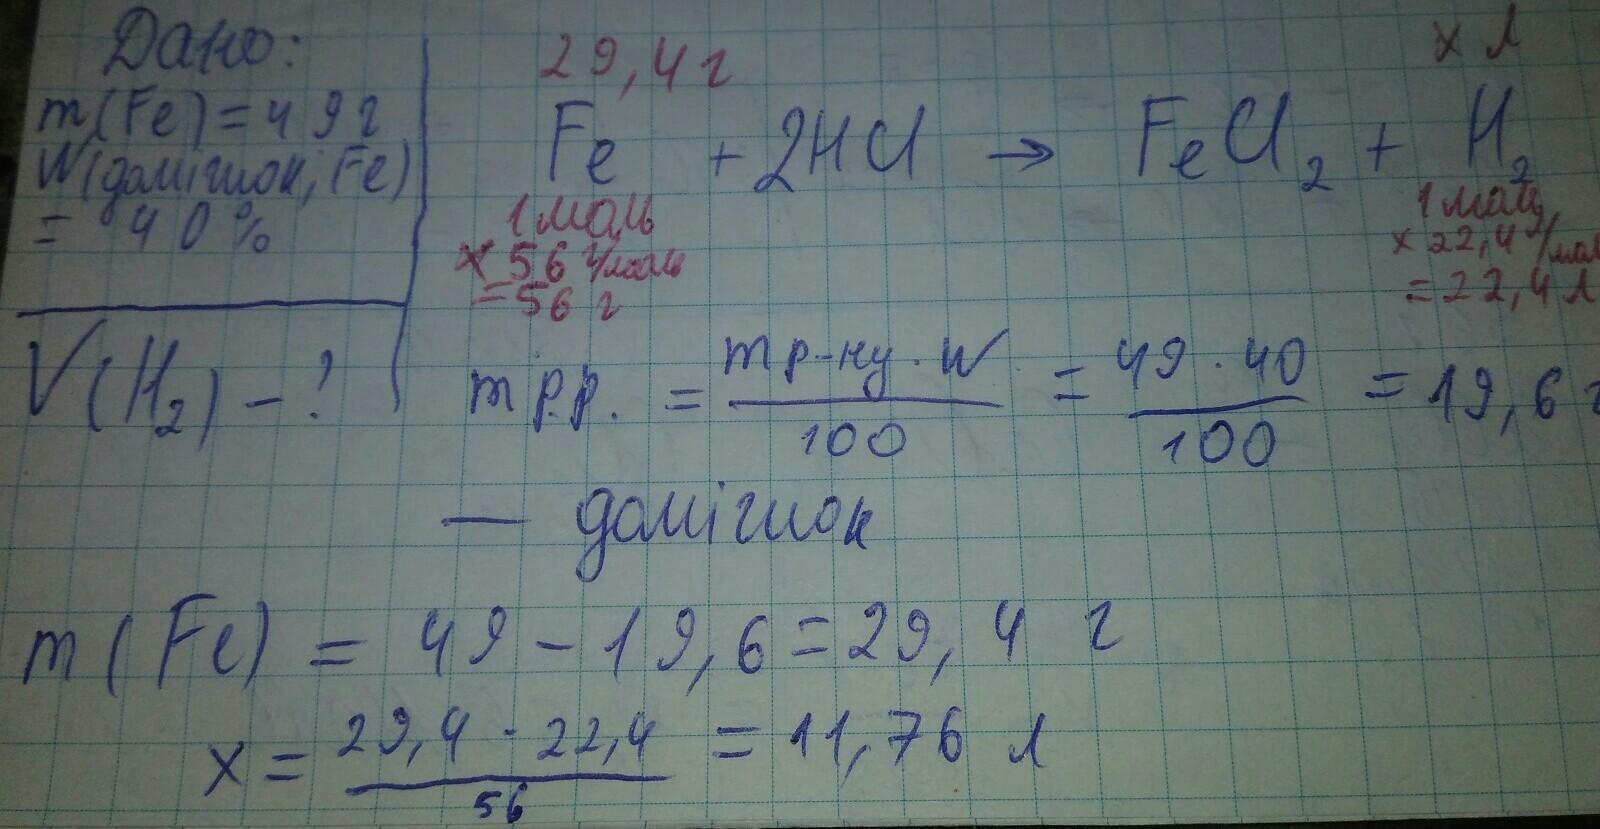 Дано:
m(Fe) = 49 г
W(домішок, Fe)
= 40 %
V(H₂) - ?
29,4 г
x л
Fe + 2HCl → FeCl₂ + H₂
1 моль
x 56 г/моль
= 56 г
1 моль
x 22,4 л/моль
= 22,4 л
m р.р. = m р-ну · W / 100 = 49 · 40 / 100 = 19,6 г
— домішок
m(Fe) = 49 - 19,6 = 29,4 г
x = 29,4 · 22,4 / 56 = 11,76 л